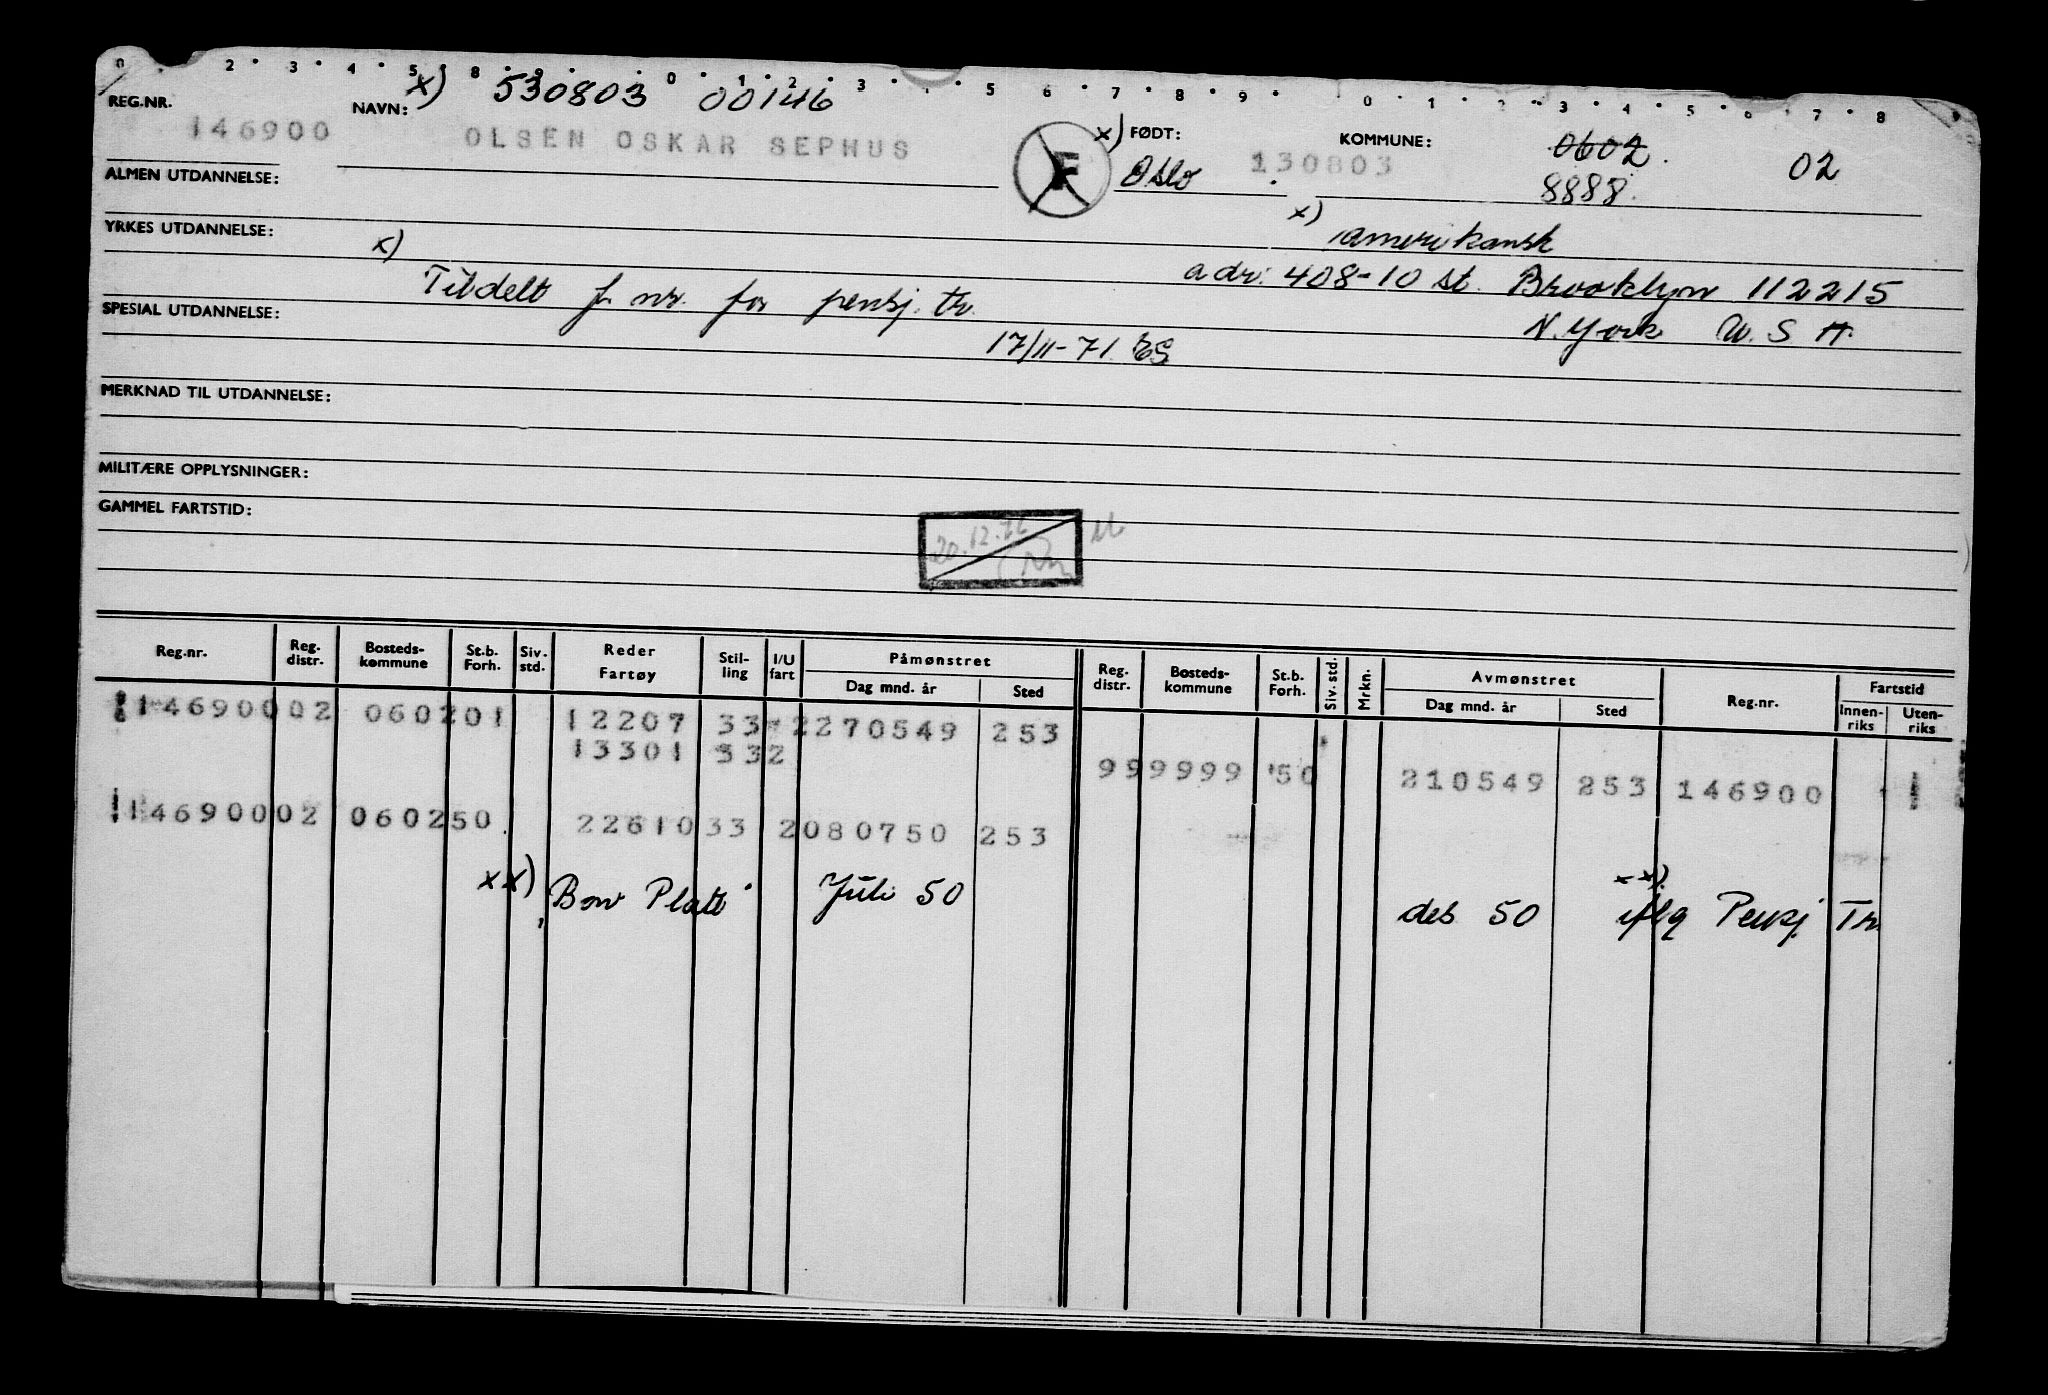 0 . 2 . 3 . 4 . 5 . 8 . 9 . . 0 . 1 . 2 . 3 . . . 5 6 . 7 . 8 . 9 . 0 . 1 . 2 . 3 . 4 . 5 . 6 . 7 . 8 9
REG.NR. NAVN: x) 530803 00146
146900 OLSEN OSKAR SEPHUS F x) FØDT: Oslo 130803 KOMMUNE: 0602. 8888. 02
ALMEN UTDANNELSE:
x) amerikansk
YRKES UTDANNELSE:
x) Tildelt f. nr. for pensj. tr. adr: 408-10 st. Brooklyn 112215
SPESIAL UTDANNELSE: 17/11-71. ES N. York U. S A.
MERKNAD TIL UTDANNELSE:
MILITÆRE OPPLYSNINGER:
GAMMEL FARTSTID:
20.12.72
Reg.nr. Reg. distr. Bosteds-kommune St.b. Forh. Siv. std. Reder Fartøy Stil-ling I/U fart Påmønstret Dag mnd. år Sted Reg. distr. Bosteds-kommune St.b. Forh. Siv. std. Mrkn. Avmønstret Dag mnd. år Sted Reg.nr. Fartstid Innen-riks Uten-riks
146900 02 0602 01 12207 33 2 270549 253
13301 332
99 9999 50 210549 253 146900
146900 02 0602 50. 22610 33 2 080750 253
xx) "Bow Platt" Juli 50 des 50 xx) iflg Pensj Tr.